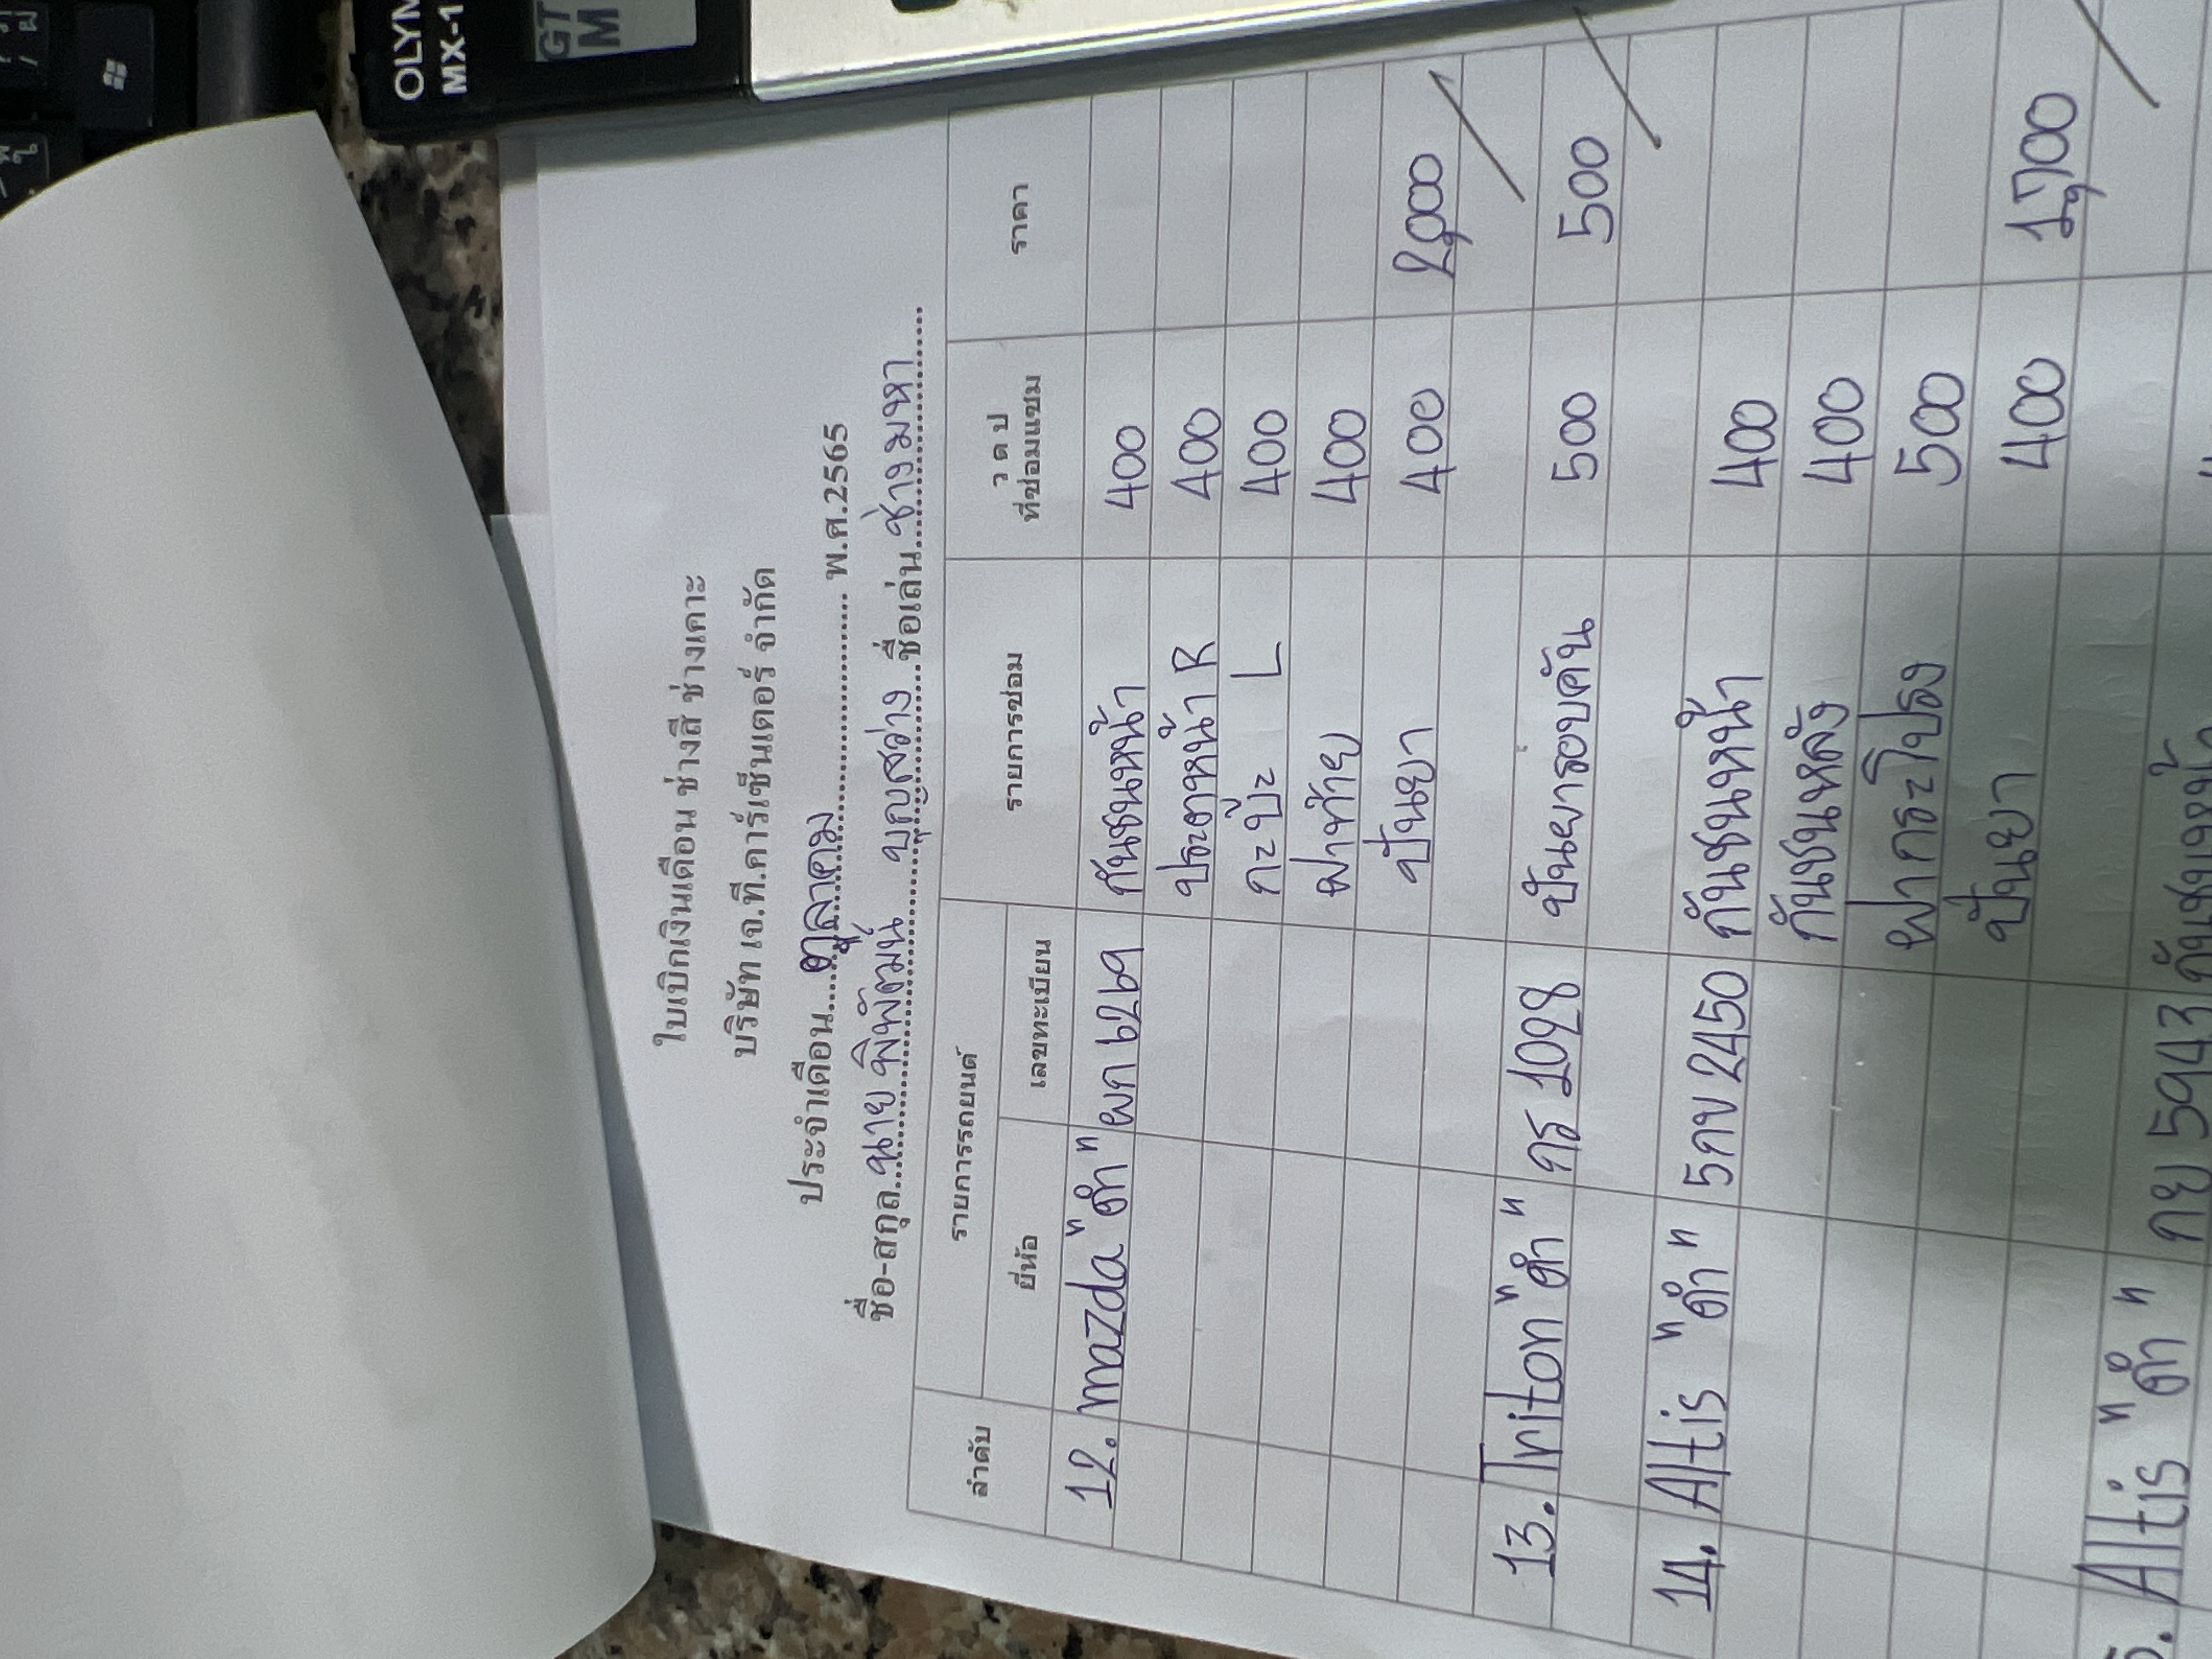 OLYM
MX-1
GT
M
ใบเบิกเงินเดือน ช่างสี ช่างเคาะ
บริษัท เจ.ที.คาร์เซ็นเตอร์ จำกัด
ประจำเดือน...ตุลาคม... พ.ศ.2565
ชื่อ-สกุล...นาย พิพัฒน์ บุญสว่าง...ชื่อเล่น...ช่างมหา...
ลำดับ รายการรถยนต์ รายการซ่อม ว ด ป ที่ซ่อมแซม ราคา
ยี่ห้อ เลขทะเบียน
12. mazda "ดำ" ผก 6269 กันชนหน้า 400
ประตูหน้า R 400
กะบะ L 400
ฝาท้าย 400
ปั่นยา 400 2,000
13. Triton "ดำ" กร 1098 ปั่นยารอบคัน 500 500
14. Altis "ดำ" 5กข 2450 กันชนหน้า 400
กันชนหลัง 400
ฝากระโปรง 500
ปั่นยา 400 1,700
5. Altis "ดำ" กย 5943 กันชนหน้า